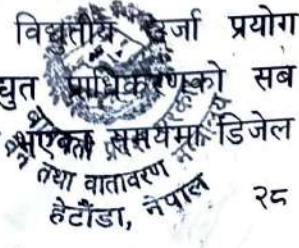 विद्युतीय उर्जा प्रयोग
द्युत प्राधिकरणको सब
भएको समयमा डिजेल
तथा वातावरण
हेटौंडा, नेपाल
२८